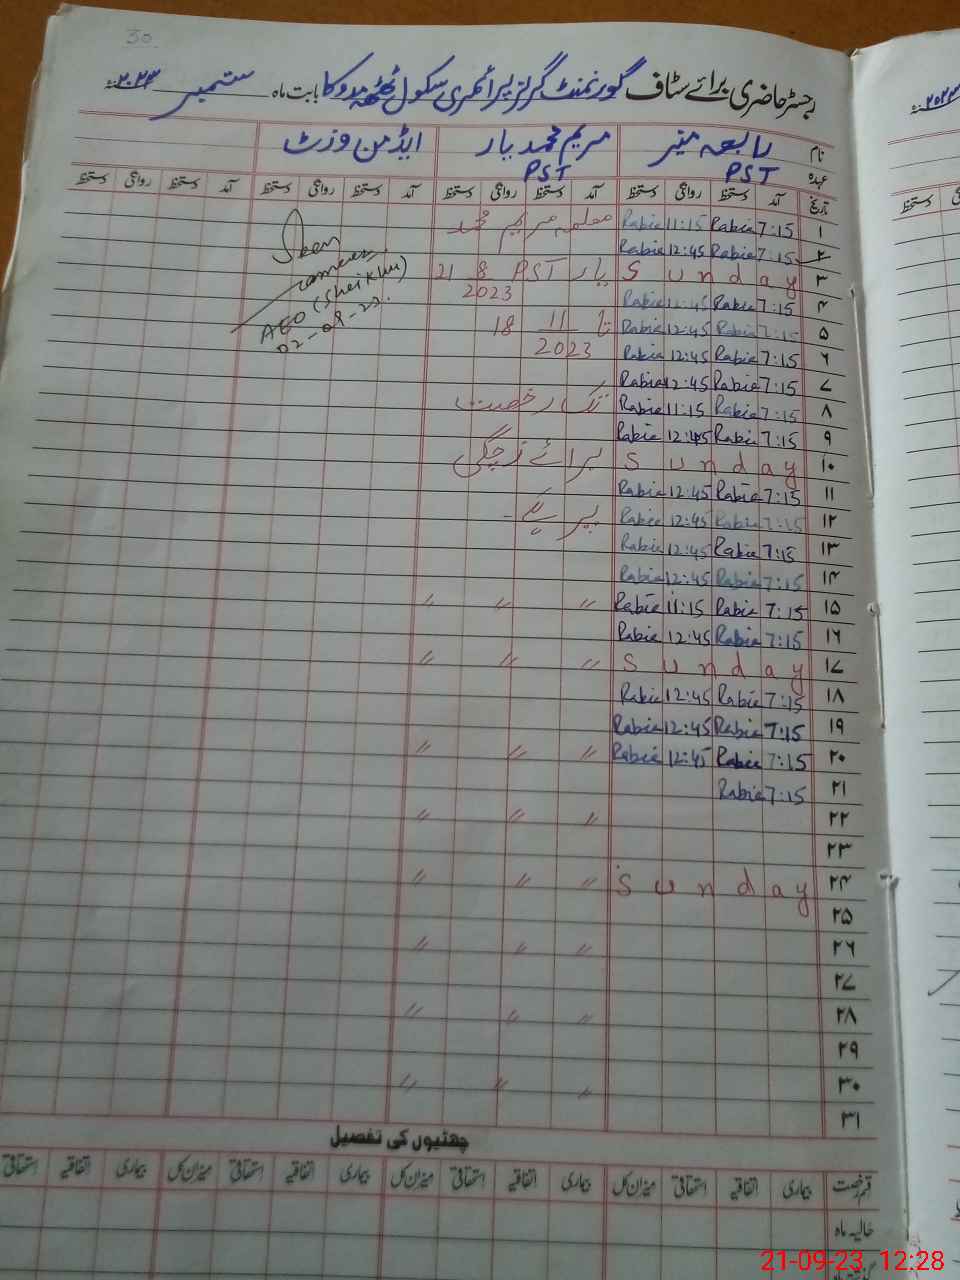 30
رجسٹر حاضری برائے سٹاف گورنمنٹ گرلز پرائمری سکول ٹھٹھہ مدوکا بابت ماہ ستمبر ۲۰۲۳
نام رابعہ منیر مریم محمد یار ایڈمن وزٹ
عہدہ PST PST
تاریخ آمد دستخط روانگی دستخط آمد دستخط روانگی دستخط آمد دستخط روانگی دستخط آمد دستخط روانگی دستخط
۱ 7:15 Rabia 11:15 Rabia معلمہ مریم محمد
۲ 7:15 Rabia 12:45 Rabia
۳ Sunday یار PST 21 8 2023
۴ 7:15 Rabia 12:45 Rabia
۵ 7:15 Rabia 12:45 Rabia تا 18 11 2023
۶ 7:15 Rabia 12:45 Rabia
۷ 7:15 Rabia 12:45 Rabia
۸ 7:15 Rabia 11:15 Rabia تک رخصت
۹ 7:15 Rabia 12:45 Rabia
۱۰ Sunday برائے زچگی
۱۱ 7:15 Rabia 12:45 Rabia
۱۲ 7:15 Rabia 12:45 Rabia پر ہے۔
۱۳ 7:15 Rabia 12:45 Rabia
۱۴ 7:15 Rabia 12:45 Rabia
۱۵ 7:15 Rabia 11:15 Rabia // // //
۱۶ 7:15 Rabia 12:45 Rabia
۱۷ Sunday // // //
۱۸ 7:15 Rabia 12:45 Rabia
۱۹ 7:15 Rabia 12:45 Rabia
۲۰ 7:15 Rabia 12:45 Rabia // // //
۲۱ 7:15 Rabia
۲۲ // // //
۲۳
۲۴ Sunday // // //
۲۵
۲۶ // // //
۲۷
۲۸ // // //
۲۹
۳۰ // // //
۳۱
Seen
AEO (Sheikhu)
02-09-23.
چھٹیوں کی تفصیل
قسم رخصت بیماری اتفاقیہ استحقاقی میزان کل بیماری اتفاقیہ استحقاقی میزان کل بیماری اتفاقیہ استحقاقی میزان کل بیماری اتفاقیہ استحقاقی
حالیہ ماہ
۲۰۲۳
دستخط
21-09-23 12:28